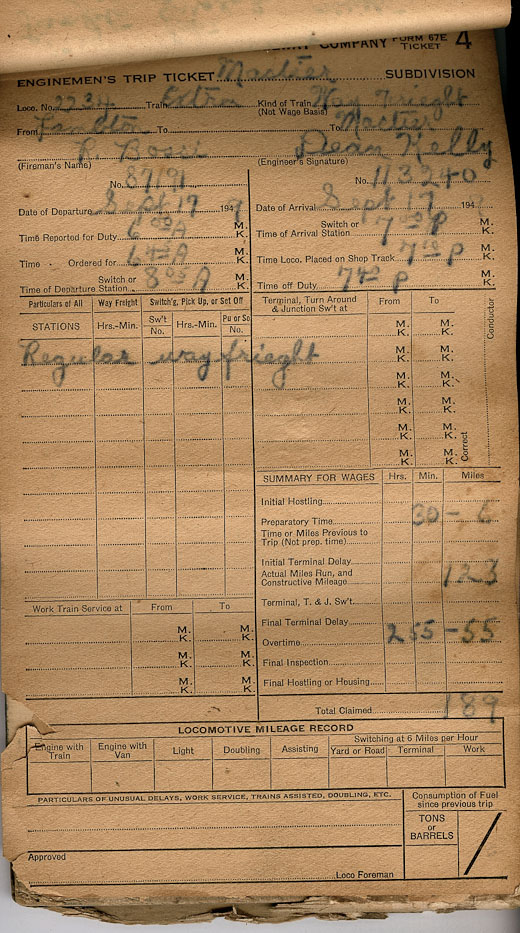 COMPANY FORM 67E
TICKET 4
ENGINEMEN'S TRIP TICKET Mactier SUBDIVISION
Loco. No. 2234 Train Extra Kind of Train Way Frieght
(Not Wage Basis)
From To To Mactier
R. Dean Kelly
(Fireman's Name) (Engineer's Signature)
No. 87191 No. 113240
Date of Departure Sept 17 194 Date of Arrival Sept 17 194
Time Reported for Duty M. K. Switch or Time of Arrival Station P M. K.
Time Ordered for 645 A M. K. Time Loco. Placed on Shop Track 710 P M. K.
Switch or Time of Departure Station 805 A M. K. Time off Duty 740 P M. K.
Particulars of All Way Freight Switch'g, Pick Up, or Set Off Terminal, Turn Around & Junction Sw't at From To Conductor
STATIONS Hrs.-Min. Sw't No. Hrs.-Min. Pu or So No. M. K. M. K.
Regular way frieght M. K. M. K.
M. K. M. K.
M. K. M. K.
M. K. M. K. Correct
M. K. M. K.
SUMMARY FOR WAGES Hrs. Min. Miles
Initial Hostling
Preparatory Time 30 - 6
Time or Miles Previous to Trip (Not prep. time)
Initial Terminal Delay
Actual Miles Run, and Constructive Mileage 123
Terminal, T. & J. Sw't.
Final Terminal Delay
Overtime 2 55 - 55
Final Inspection
Final Hostling or Housing
Total Claimed 189
Work Train Service at From To
M. K. M. K.
M. K. M. K.
M. K. M. K.
LOCOMOTIVE MILEAGE RECORD
Engine with Train Engine with Van Light Doubling Assisting Switching at 6 Miles per Hour
Yard or Road Terminal Work
PARTICULARS OF UNUSUAL DELAYS, WORK SERVICE, TRAINS ASSISTED, DOUBLING, ETC. Consumption of Fuel since previous trip
TONS or BARRELS
Approved
Loco Foreman